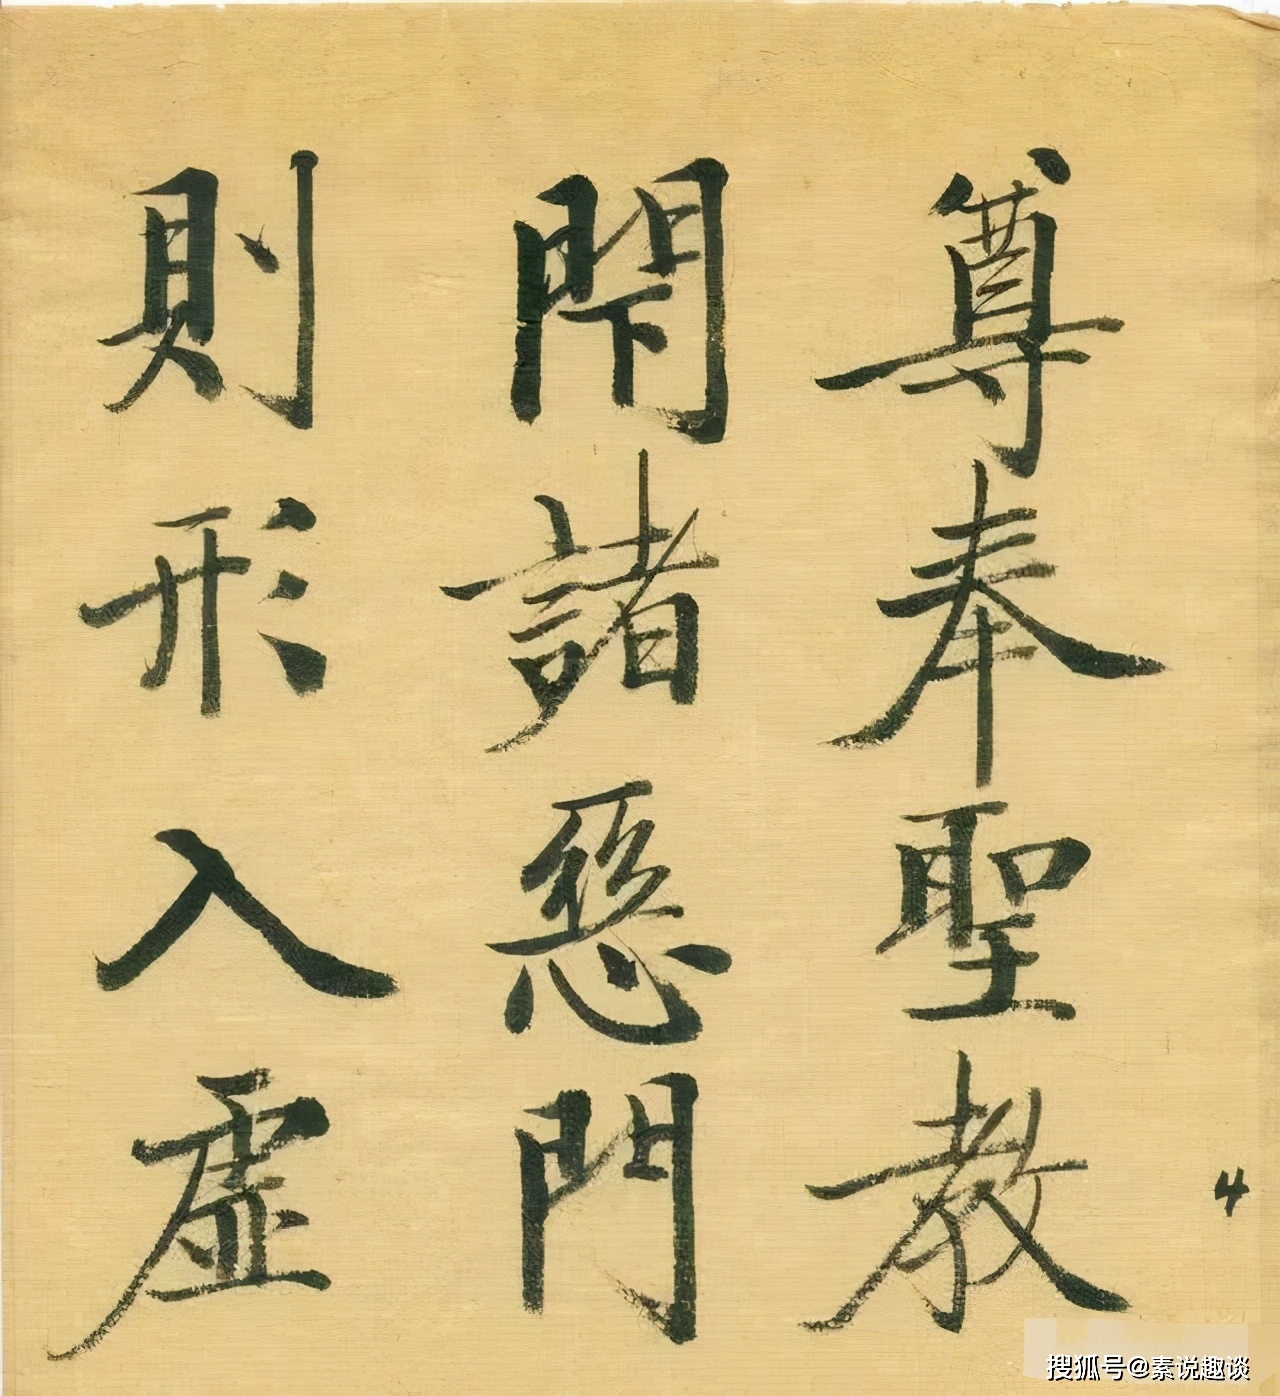 尊奉聖教
閇諸惡門
則形入虚
4
搜狐号@素说趣谈